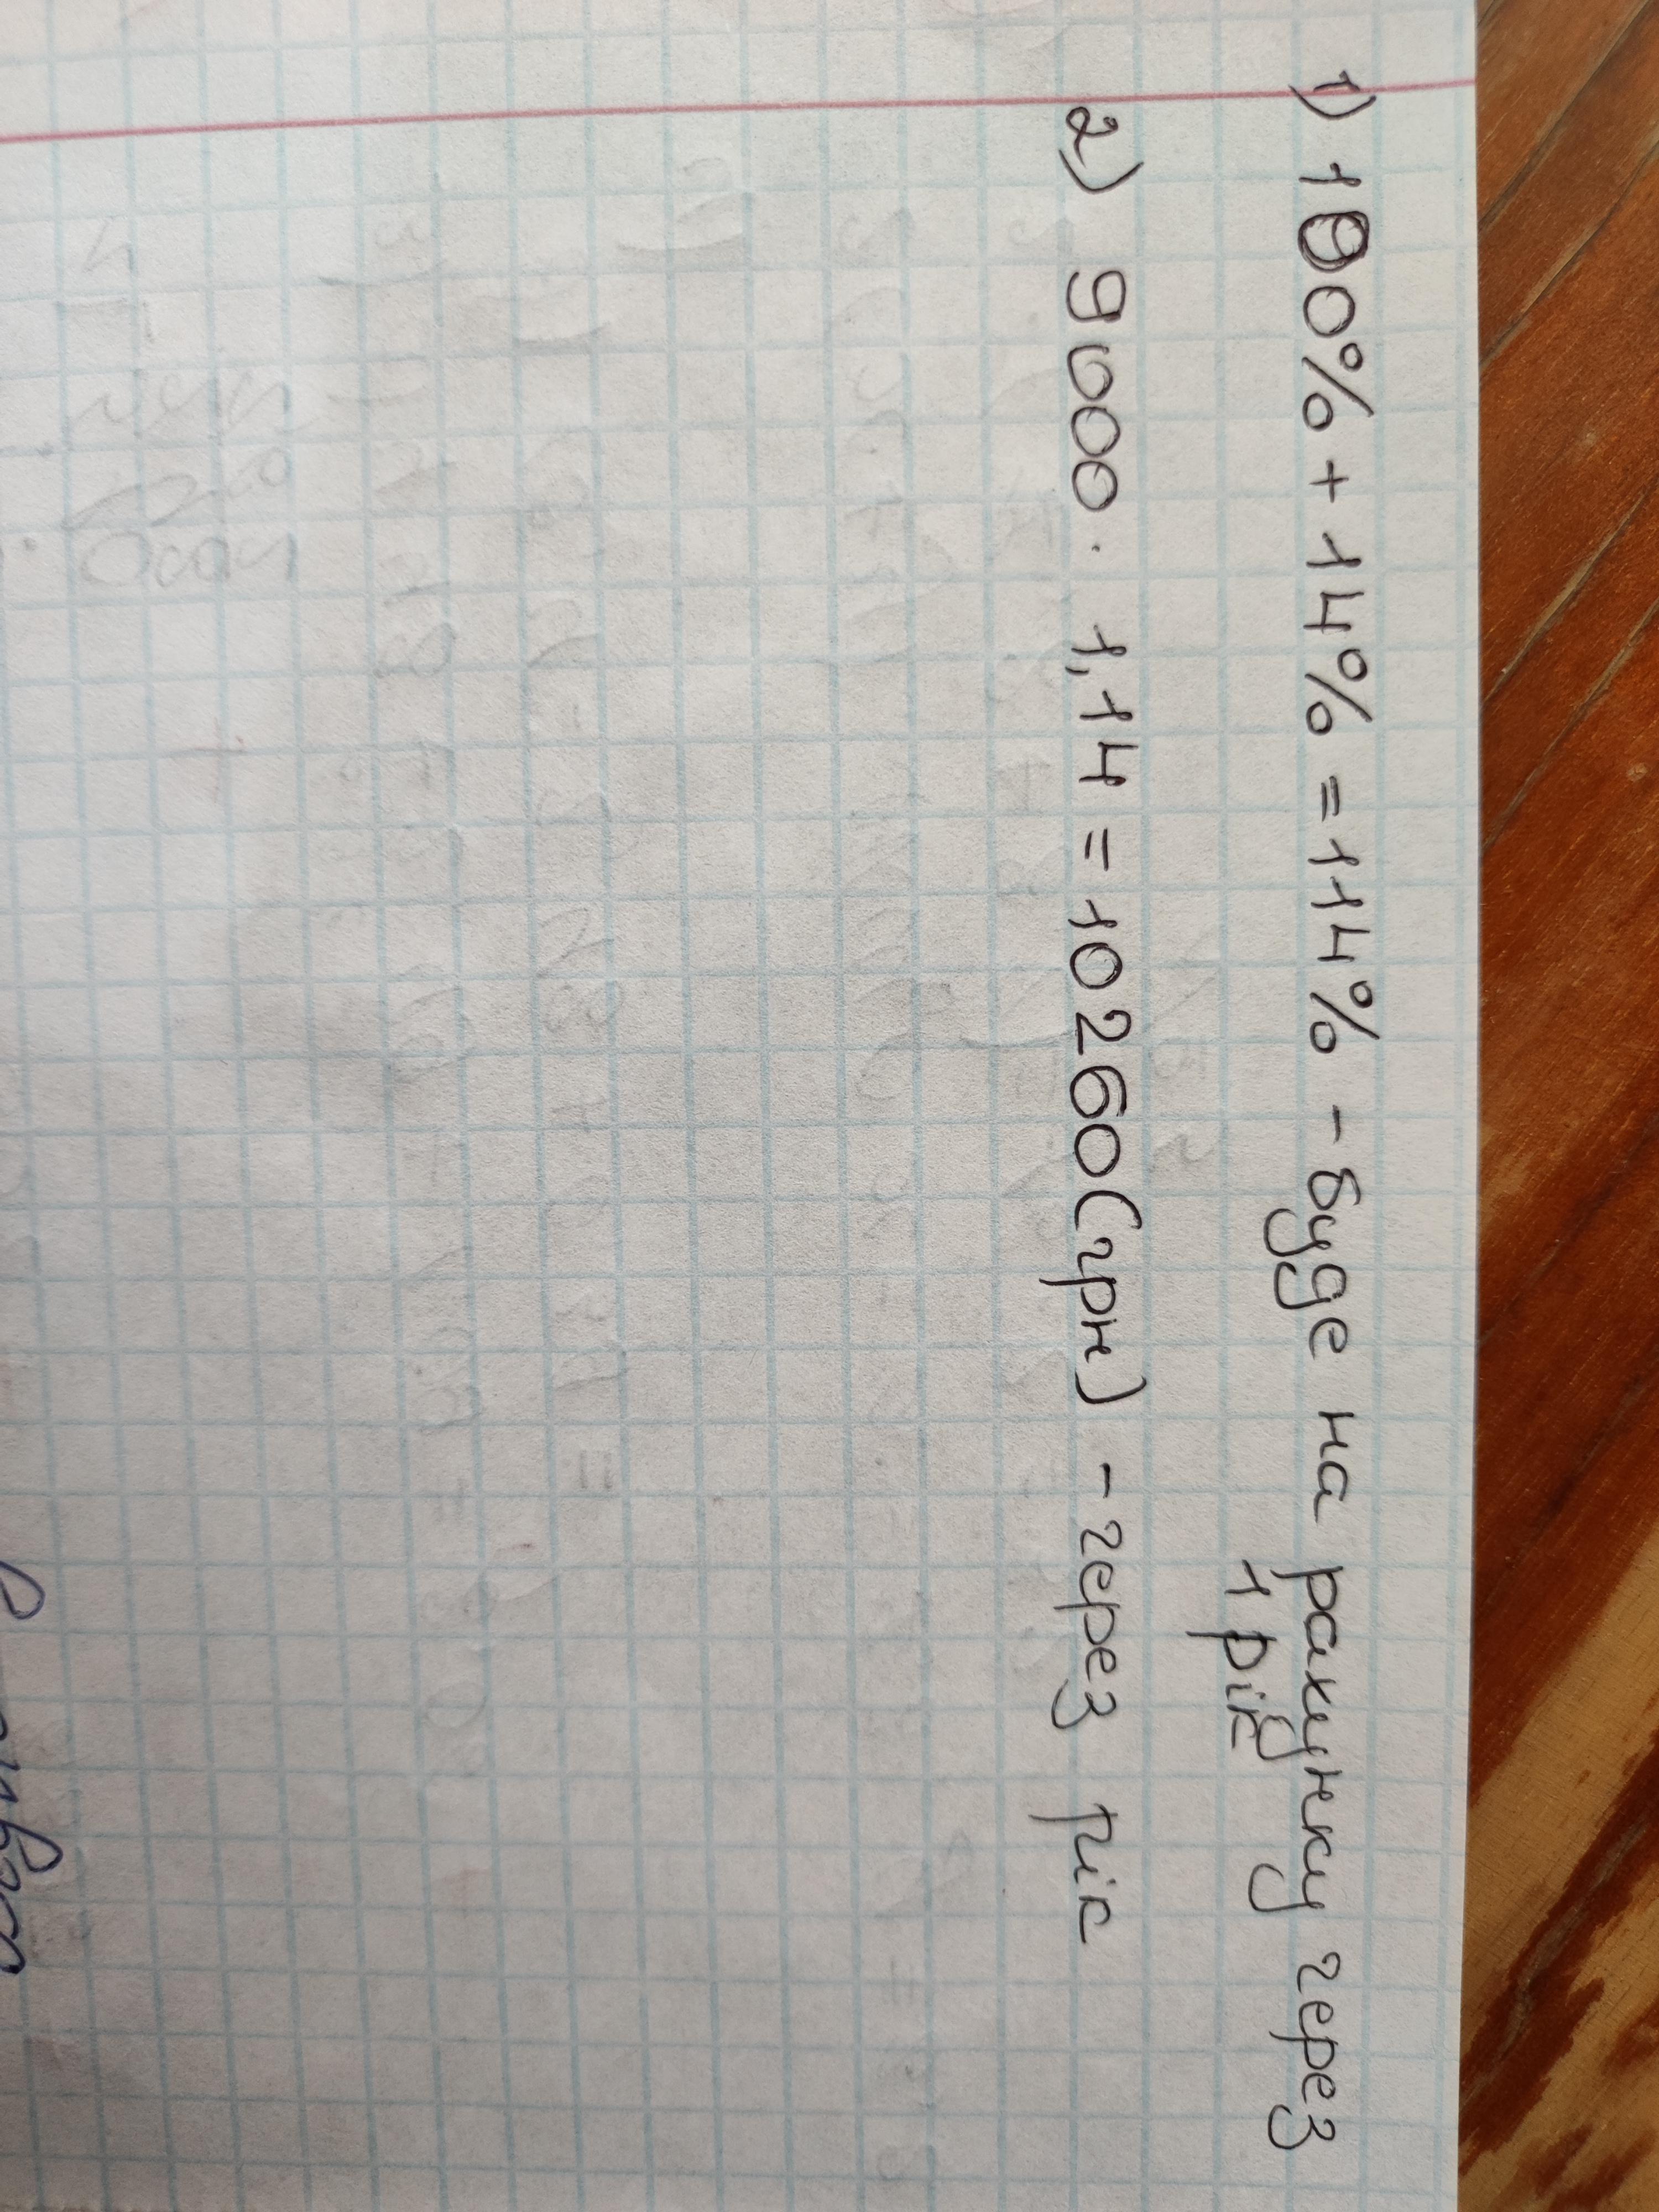 1) 100% + 14% = 114% - буде на рахунку через
1 рік
2) 9000 · 1,14 = 10260(грн) - через рік